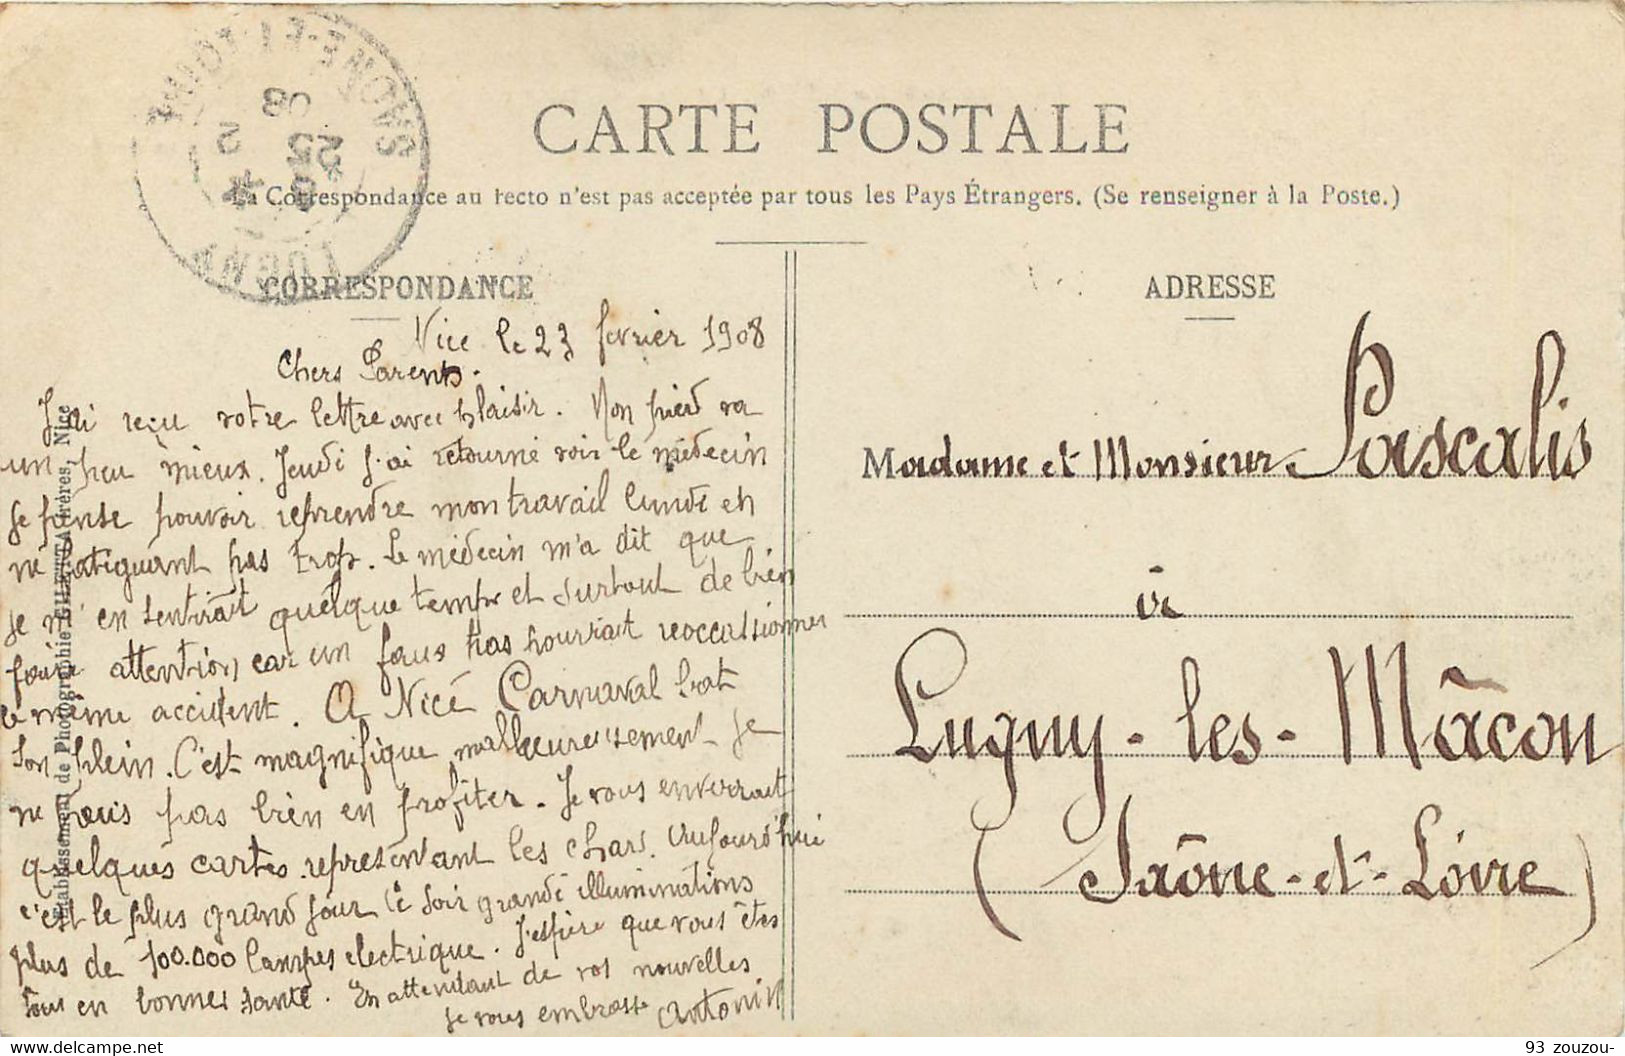 CARTE POSTALE
La Correspondance au recto n'est pas acceptée par tous les Pays Étrangers. (Se renseigner à la Poste.)
SAONE-ET-LOIRE
25
2
08
LUGNY
CORRESPONDANCE
Nice le 23 fevrier 1908
Chers Parents.
J'ai reçu votre lettre avec plaisir. Mon pied va
un peu mieux. Jeudi j'ai retourné voir le médecin
je pense pouvoir reprendre mon travail lundi en
ne fatiguant pas trop. Le médecin m'a dit que
je m'en sentirait quelque temps et surtout de bien
faire attention car un faux pas pourrait reoccassionner
le même accident. A Nice Carnaval bat
son plein. C'est magnifique malheureusement je
ne puis pas bien en profiter. Je vous enverrait
quelques cartes représentant les chars. Aujourd'hui
c'est le plus grand jour Ce soir grande illuminations
plus de 100.000 lampes electrique. J'espère que vous êtes
tous en bonnes santé. En attendant de vos nouvelles
je vous embrasse Antonin
Etablissement de Photographie GILETTA frères, Nice
ADRESSE
Madame et Monsieur Pascalis
à
Lugny-les-Mâcon
(Saône-et-Loire)
93 zouzou-